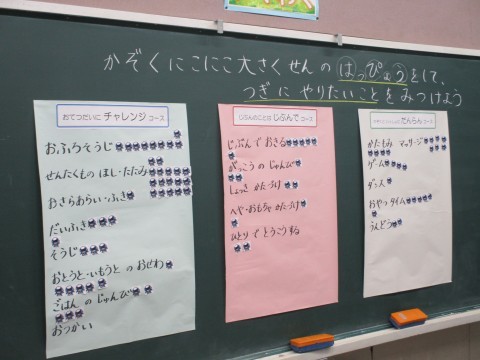 かぞくにこにこ大さくせんの はっぴょうをして、
つぎに やりたいことを みつけよう
おてつだいに チャレンジ コース
おふろそうじ
せんたくもの ほし・たたみ
おさらあらい・ふき
だいふき
そうじ
おとうと・いもうと の おせわ
ごはん の じゅんび
おつかい
じぶんのことは じぶんで コース
じぶんで おきる
がっこう の じゅんび
しょっき かたづけ
へや・おもちゃ かたづけ
ひとり で とうこう する
だんらん コース
かたもみ マッサージ
ゲーム
ダンス
おやつ タイム
うんどう